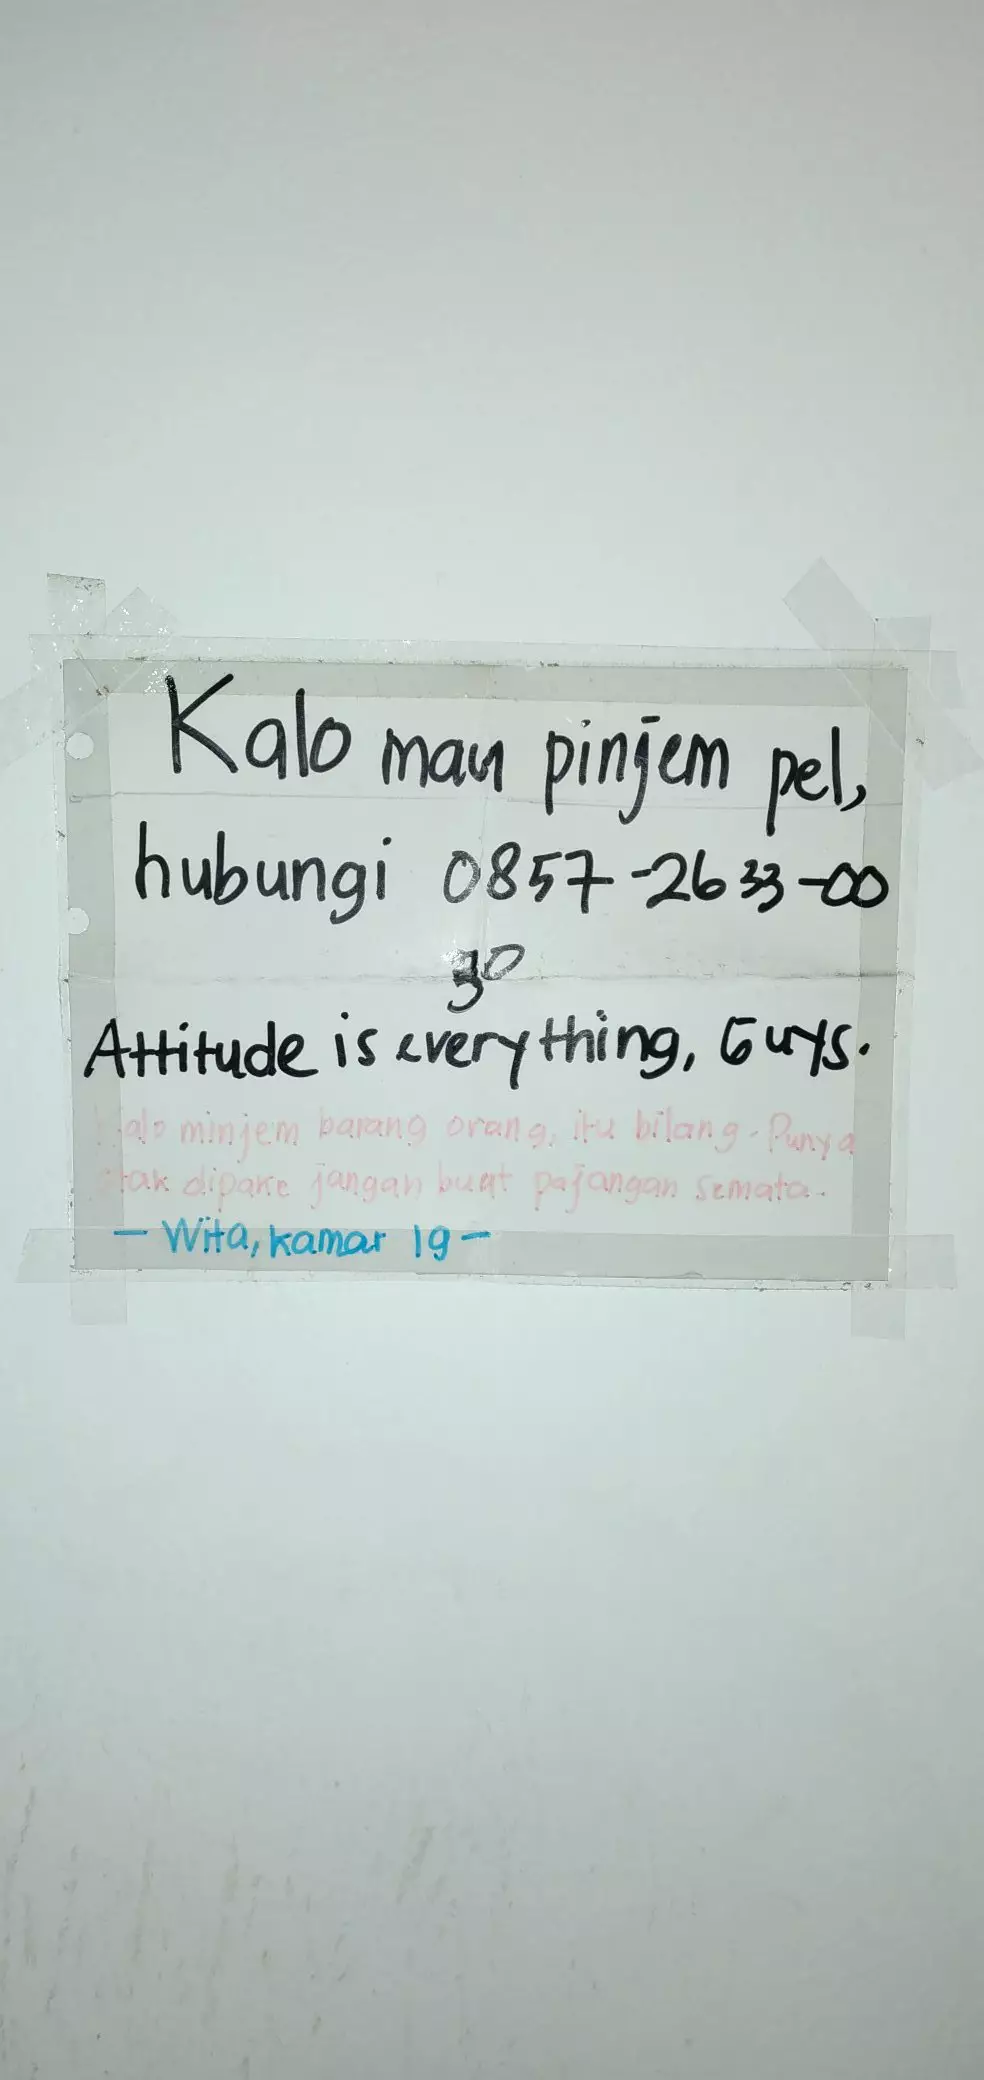 Kalo mau pinjem pel,
hubungi 0857-2633-00
30
Attitude is everything, Guys.
Kalo minjem barang orang, itu bilang. Punya
otak dipake jangan buat pajangan semata.
- Wita, kamar 19 -